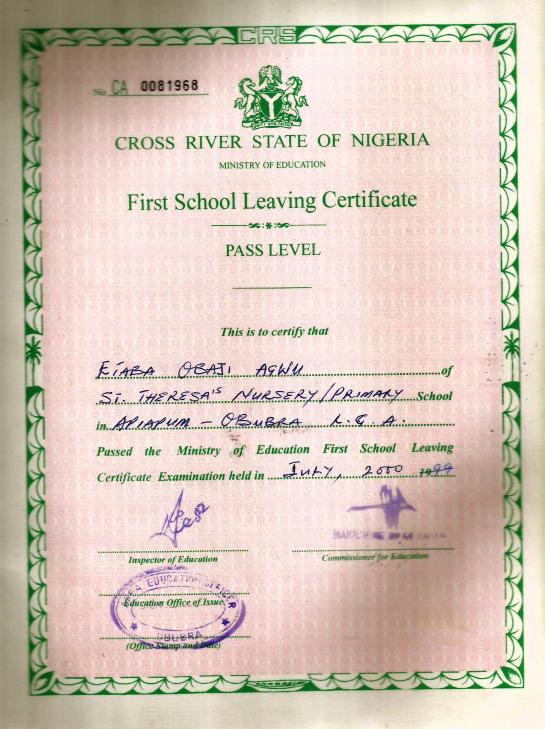 CRS
No. CA 0081968
CROSS RIVER STATE OF NIGERIA
MINISTRY OF EDUCATION
First School Leaving Certificate
PASS LEVEL
This is to certify that
EJABA OBAJI AGWU of
ST. THERESA'S NURSERY/PRIMARY School
in APIAPUM - OBUBRA L.G.A.
Passed the Ministry of Education First School Leaving
Certificate Examination held in JULY, 2000 1999
Inspector of Education
Commissioner for Education
EDUCATION OFFICER
Education Office of Issue
OBUBRA
(Office Stamp and Date)